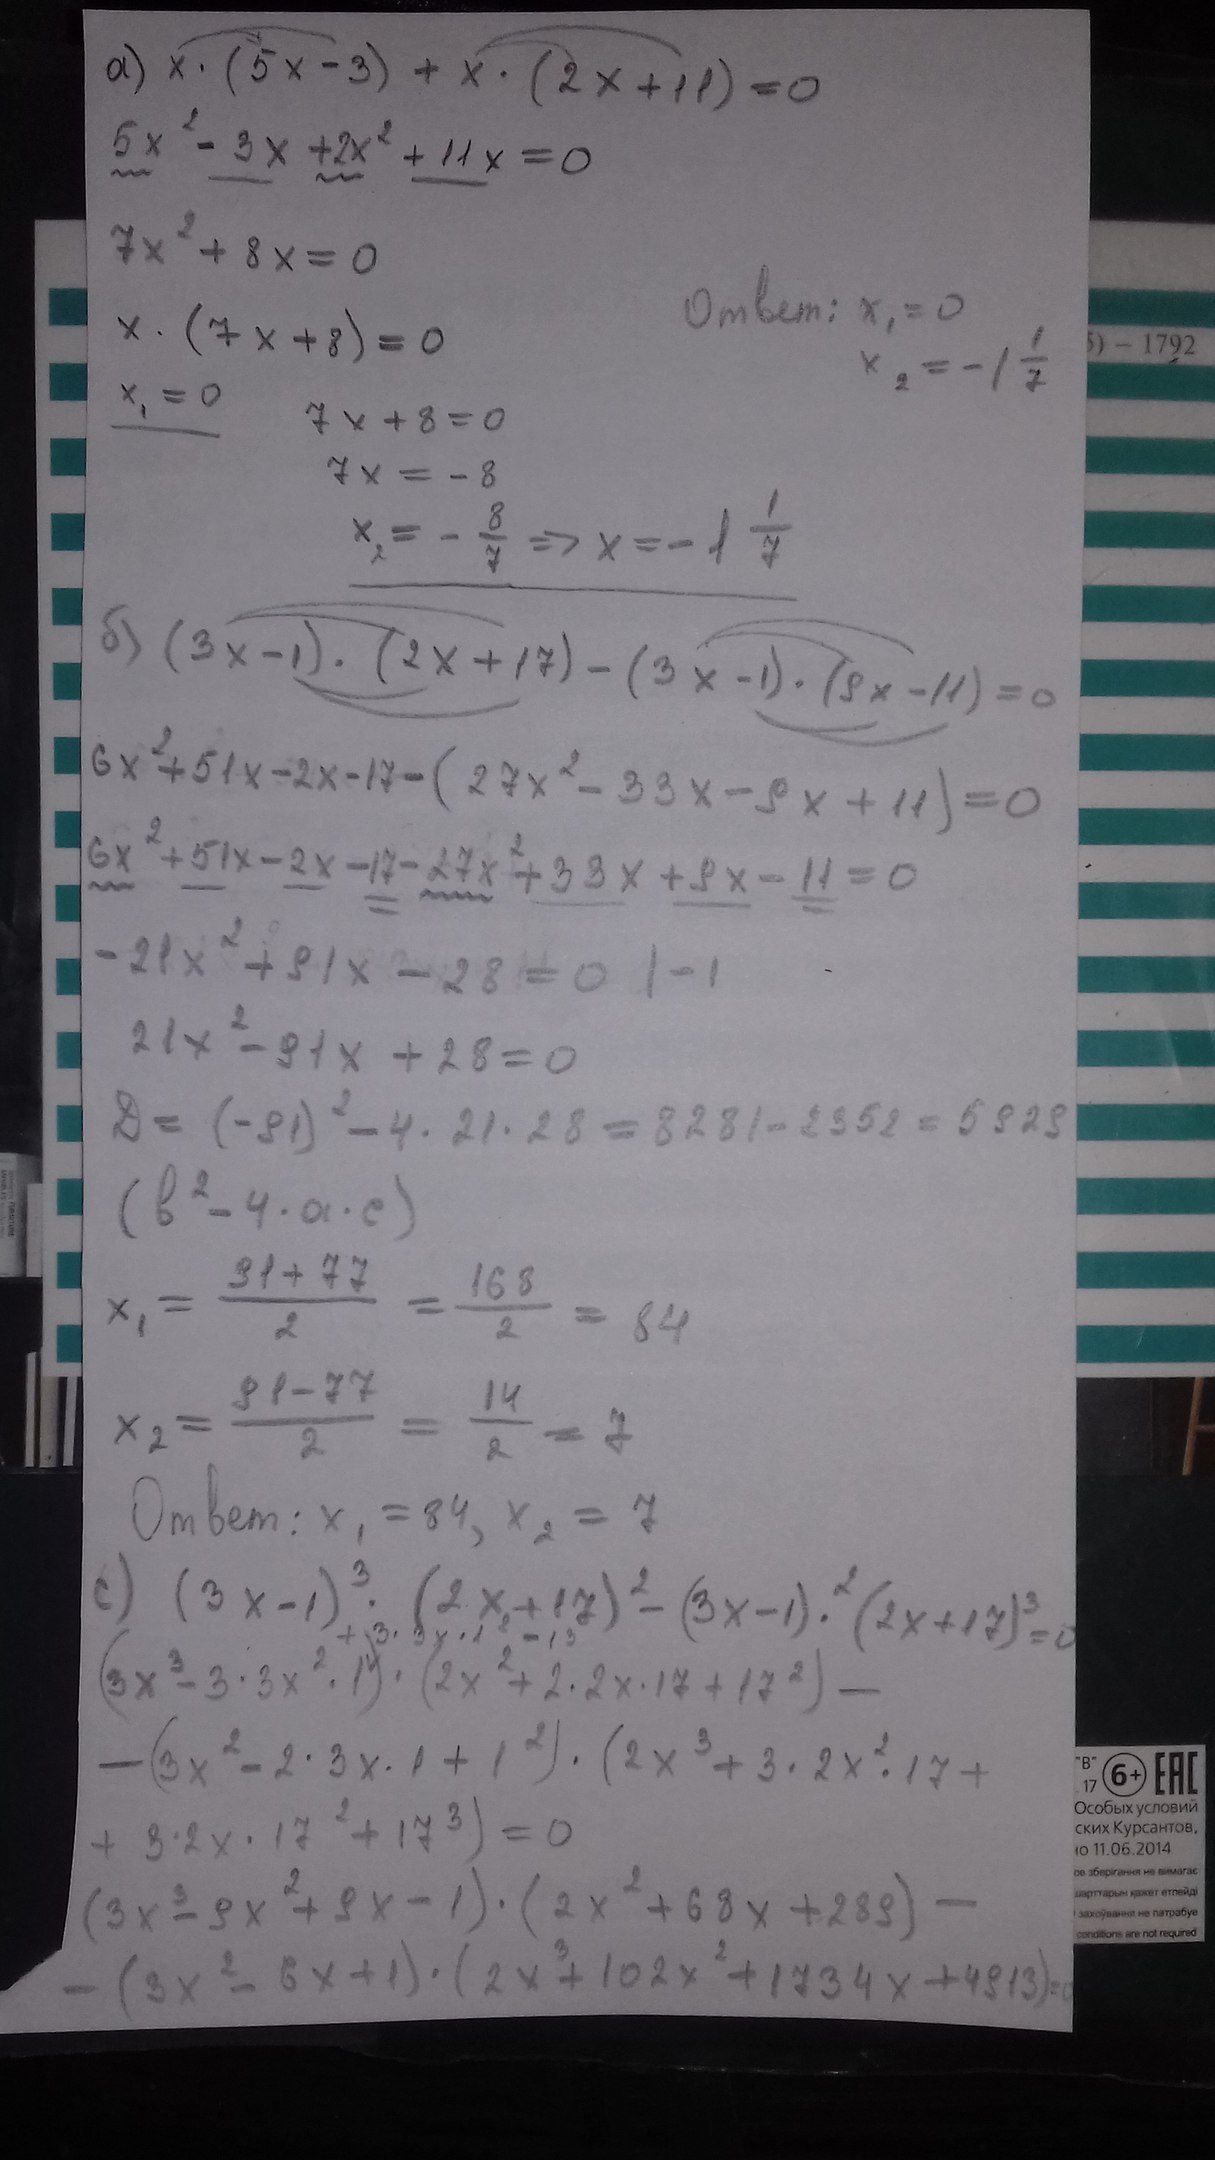 а) x · (5x - 3) + x · (2x + 11) = 0
5x² - 3x + 2x² + 11x = 0
7x² + 8x = 0
x · (7x + 8) = 0
x₁ = 0
7x + 8 = 0
7x = - 8
x₂ = - 8/7 => x = - 1 1/7
Ответ: x₁ = 0
x₂ = - 1 1/7
5) – 1792
б) (3x - 1) · (2x + 17) - (3x - 1) · (9x - 11) = 0
6x² + 51x - 2x - 17 - (27x² - 33x - 9x + 11) = 0
6x² + 51x - 2x - 17 - 27x² + 33x + 9x - 11 = 0
- 21x² + 91x - 28 = 0 | - 1
21x² - 91x + 28 = 0
D = (-91)² - 4 · 21 · 28 = 8281 - 2352 = 5929
(b² - 4 · a · c)
x₁ = (91 + 77)/2 = 168/2 = 84
x₂ = (91 - 77)/2 = 14/2 = 7
Ответ: x₁ = 84, x₂ = 7
с) (3x - 1)³ · (2x + 17)² - (3x - 1) ·² (2x + 17)³ = 0
+ 3 · 3x · 1² - 1³
(3x³ - 3 · 3x² · 1) · (2x² + 2 · 2x · 17 + 17²) -
- (3x² - 2 · 3x · 1 + 1²) · (2x³ + 3 · 2x² · 17 +
+ 3 · 2x · 17² + 17³) = 0
(3x³ - 9x² + 9x - 1) · (2x² + 68x + 289) -
- (3x² - 6x + 1) · (2x³ + 102x² + 1734x + 4913) = 0
"В"
17
6+
EAC
Особых условий
ских Курсантов,
но 11.06.2014
ое зберігання не вимагає
шарттарын қажет етпейді
захоўвання не патрабуе
conditions are not required